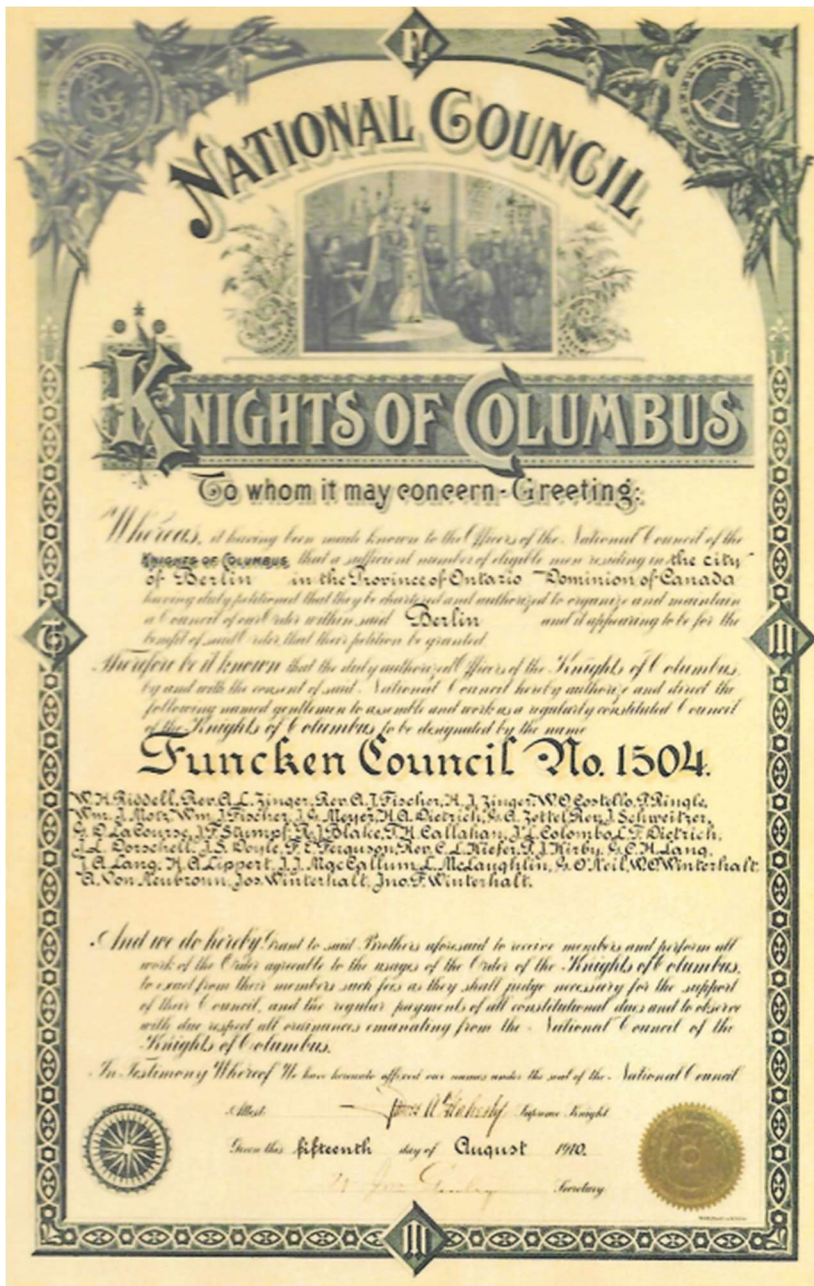 F.
NATIONAL COUNCIL
KNIGHTS OF COLUMBUS
To whom it may concern - Greeting:
Whereas, it having been made known to the Officers of the National Council of the
KNIGHTS OF COLUMBUS, that a sufficient number of eligible men residing in the city
of Berlin in the Province of Ontario Dominion of Canada
having duly petitioned that they be chartered and authorized to organize and maintain
a Council of our Order within said Berlin and it appearing to be for the
benefit of said Order that their petition be granted
Therefore be it known that the duly authorized Officers of the Knights of Columbus,
by and with the consent of said National Council hereby authorize and direct the
following named gentlemen to assemble and work as a regularly constituted Council
of the Knights of Columbus to be designated by the name
Funcken Council No. 1504.
W.H. Riddell, Rev. A.L. Zinger, Rev. A.J. Fischer, H.J. Zinger, W.O. Costello, P. Ringle,
Wm. J. Motz, Wm. J. Fischer, J.G. Meyer, H.A. Dietrich, G.A. Zettel, Rev. J. Schweitzer,
G.D. LaCourse, J.F. Stumpf, R.J. Blake, F.H. Callahan, J.L. Colombo, L.T. Dietrich,
J.L. Dorschell, J.S. Doyle, F.E. Ferguson, Rev. C.L. Kiefer, P.J. Kirby, G.C.H. Lang,
J.A. Lang, H.A. Lippert, J.J. MacCallum, L. McLaughlin, G. O'Neil, W.O. Winterhalt
A. Von Neubronn, Jos. Winterhalt, Jno. F. Winterhalt.
And we do hereby Grant to said Brothers aforesaid to receive members and perform all
work of the Order agreeable to the usages of the Order of the Knights of Columbus,
to exact from their members such fees as they shall judge necessary for the support
of their Council, and the regular payments of all constitutional dues and to observe
with due respect all ordinances emanating from the National Council of the
Knights of Columbus.
In Testimony Whereof We have hereunto affixed our names under the seal of the National Council
Attest James A. Flaherty Supreme Knight
Given this fifteenth day of August 1910.
Secretary